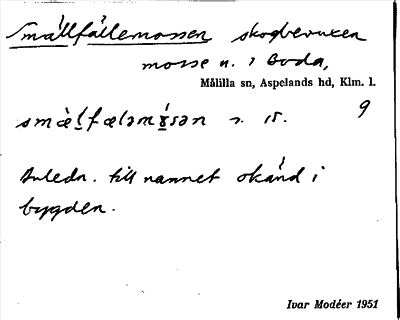 Smållfållemossen skogbevuxen
mosse n. i Boda,
Målilla sn, Aspelands hd, Klm. l.
9
Anledn. till namnet okänd i
bygden.
Ivar Modéer 1951